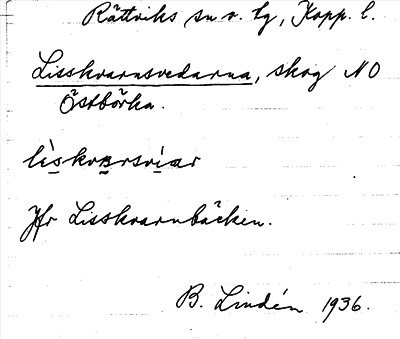 Rättviks sn o. tg, Kopp. l.
Lisskvarnsvedarna, skog NO
Östbörka.
Jfr Lisskvarnbäcken.
B. Lindén 1936.